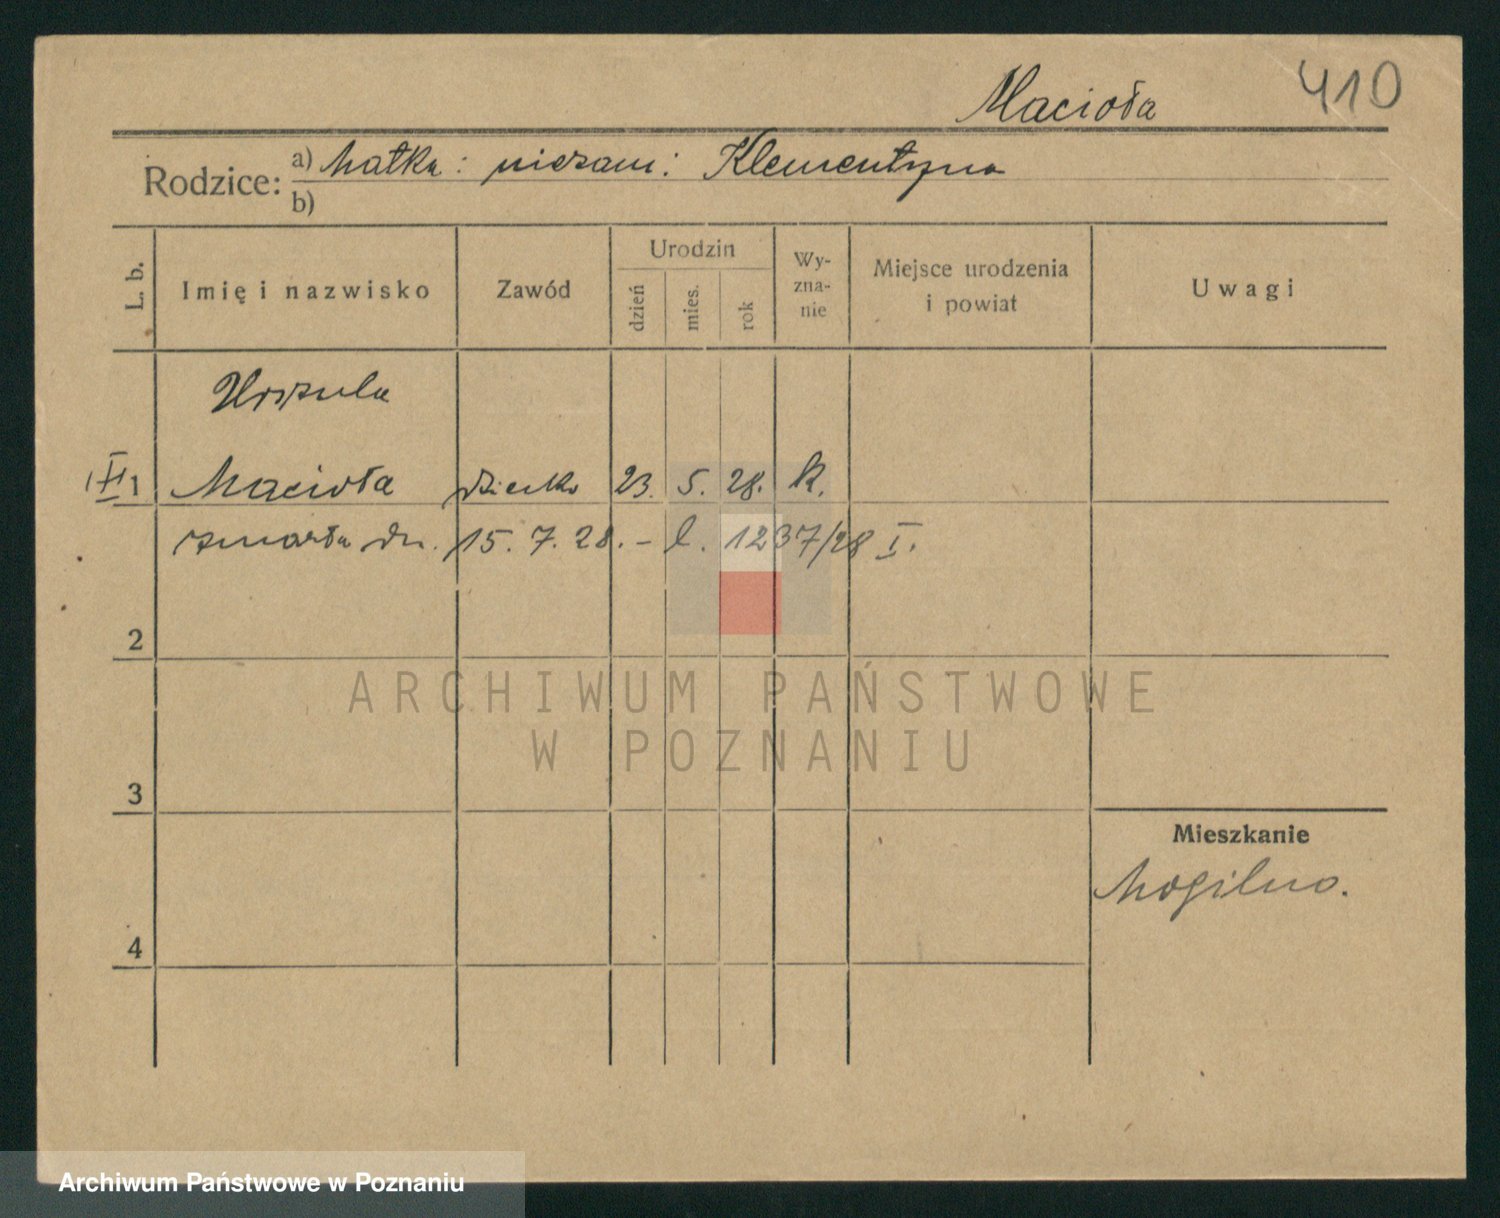 Macioła 410
Rodzice: a) Matka: niezam: Klementyna
b)
L. b. Imię i nazwisko Zawód Urodzin dzień mies. rok Wy-zna-nie Miejsce urodzenia i powiat Uwagi
Urszula
1 Macioła dziecko 23. 5. 28. k.
zmarła dn. 15. 7. 28. - l. 1237/28 I.
2
ARCHIWUM PAŃSTWOWE
W POZNANIU
3
Mieszkanie
Mogilno.
4
Archiwum Państwowe w Poznaniu